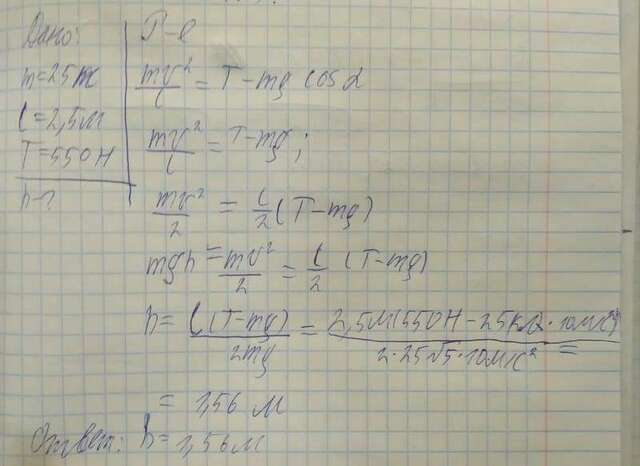 Дано:
m=25кг
l=2,5м
T=550Н
h-?
P-е
mv²/l = T-mg cosα
mv²/l = T-mg;
mv²/2 = l/2 (T-mg)
mgh = mv²/2 = l/2 (T-mg)
h = l(T-mg)/2mg = 2,5м(550Н-25кг·10м/с²)/2·25кг·10м/с² =
= 1,56 м
Ответ: h = 1,56м